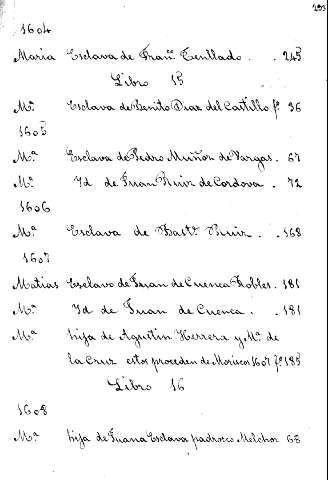 293
1604
Maria Esclava de Fran.co Tenllado . . 245
Libro 15
M.a Esclava de Benito Diaz del Castillo fº 36
1605
M.a Esclava de Pedro Muñoz de Vargas . 67
M.a Id de Juan Ruiz de Cordova . 72
1606
M.a Esclava de Bart.e Ruiz . . 168
1607
Matias Esclavo de Juan de Cuenca Robles . 181
M.a Id de Juan de Cuenca . . 181
M.a hija de Agustin Herrera y M.a de
la Cruz estos proceden de Moriscos 1607 fº 185
Libro 16
1608
M.a hija de Juana Esclava padrºco Melchor 68